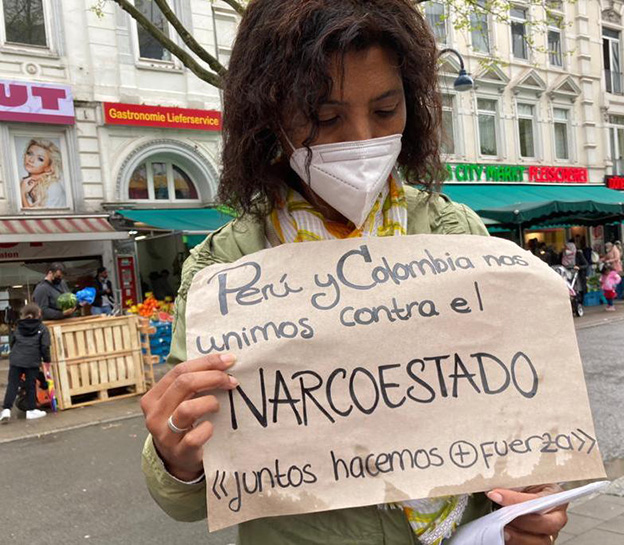 UT
Gastronomie Lieferservice
CITY MARKT FLEISCHEREI
Perú y Colombia nos
unimos contra el
NARCOESTADO
«juntos hacemos ⊕ fuerza»